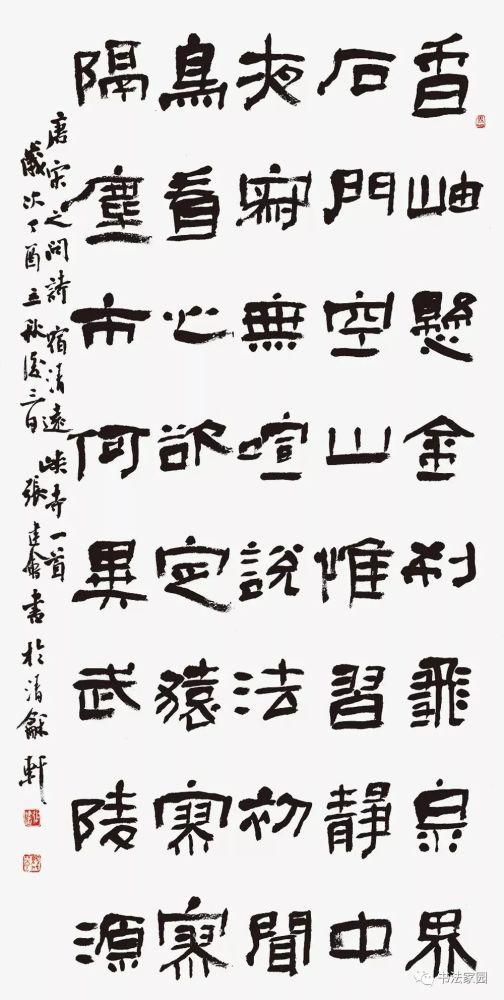 香岫懸金刹飛泉界
石門空山惟習靜中
夜寂無喧說法初聞
鳥看心欲定猿寥寥
隔塵市何異武陵源
唐宋之問詩宿清遠峽寺一首
歲次丁酉立秋後三日張建會書於清龢軒
书法家园